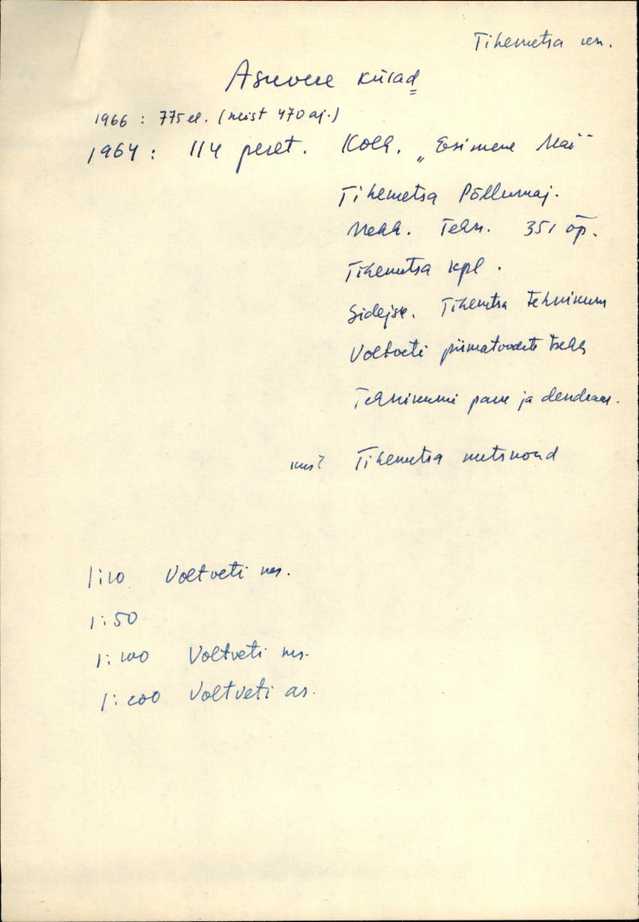 Tihemetsa
Asuvere külad
1966 : 775 el. (neist 470 aj.)
1964 : 114 peret. Kolh. „Esimene Mai"
Tihemetsa Põllumaj.
Mehh. Tehn. 351 õp.
Tihemetsa kpl.
Sidejsk. Tihemetsa tehnikum
Voltveti piimatoodete tsehh
Tehnikumi park ja dendraar.
kus? Tihemetsa metskond
1:10 Voltveti ms.
1:50
1:100 Voltveti ms.
1:200 Voltveti as.